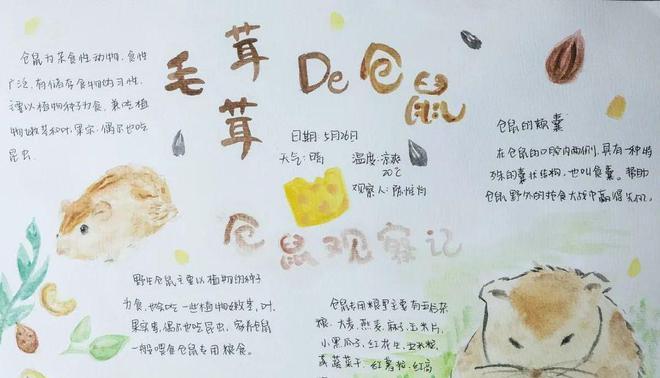 毛茸茸De仓鼠
仓鼠为杂食性动物,食性
广泛,有储存食物的习性,
主要以植物种子为食,兼吃植
物嫩芽和叶、果实,偶尔也吃
昆虫.
日期:5月26日
天气:晴 温度:凉爽
20℃
观察人:陈
仓鼠的颊囊
在仓鼠的口腔内两侧,具有一种特
殊的囊状结构,也叫食囊。帮助
仓鼠野外的抢食大战中赢得先机.
仓鼠观察记
野生仓鼠主要以植物的种子
为食,也会吃一些植物嫩芽,叶,
果实等,偶尔也吃昆虫、家养仓鼠
一般喂食仓鼠专用粮食。
仓鼠专用粮里主要有五谷杂
粮、大麦、燕麦、麻子、玉米片,
小黑瓜子、红花生、玉米粒,
蔬菜干、红薯粒、红高